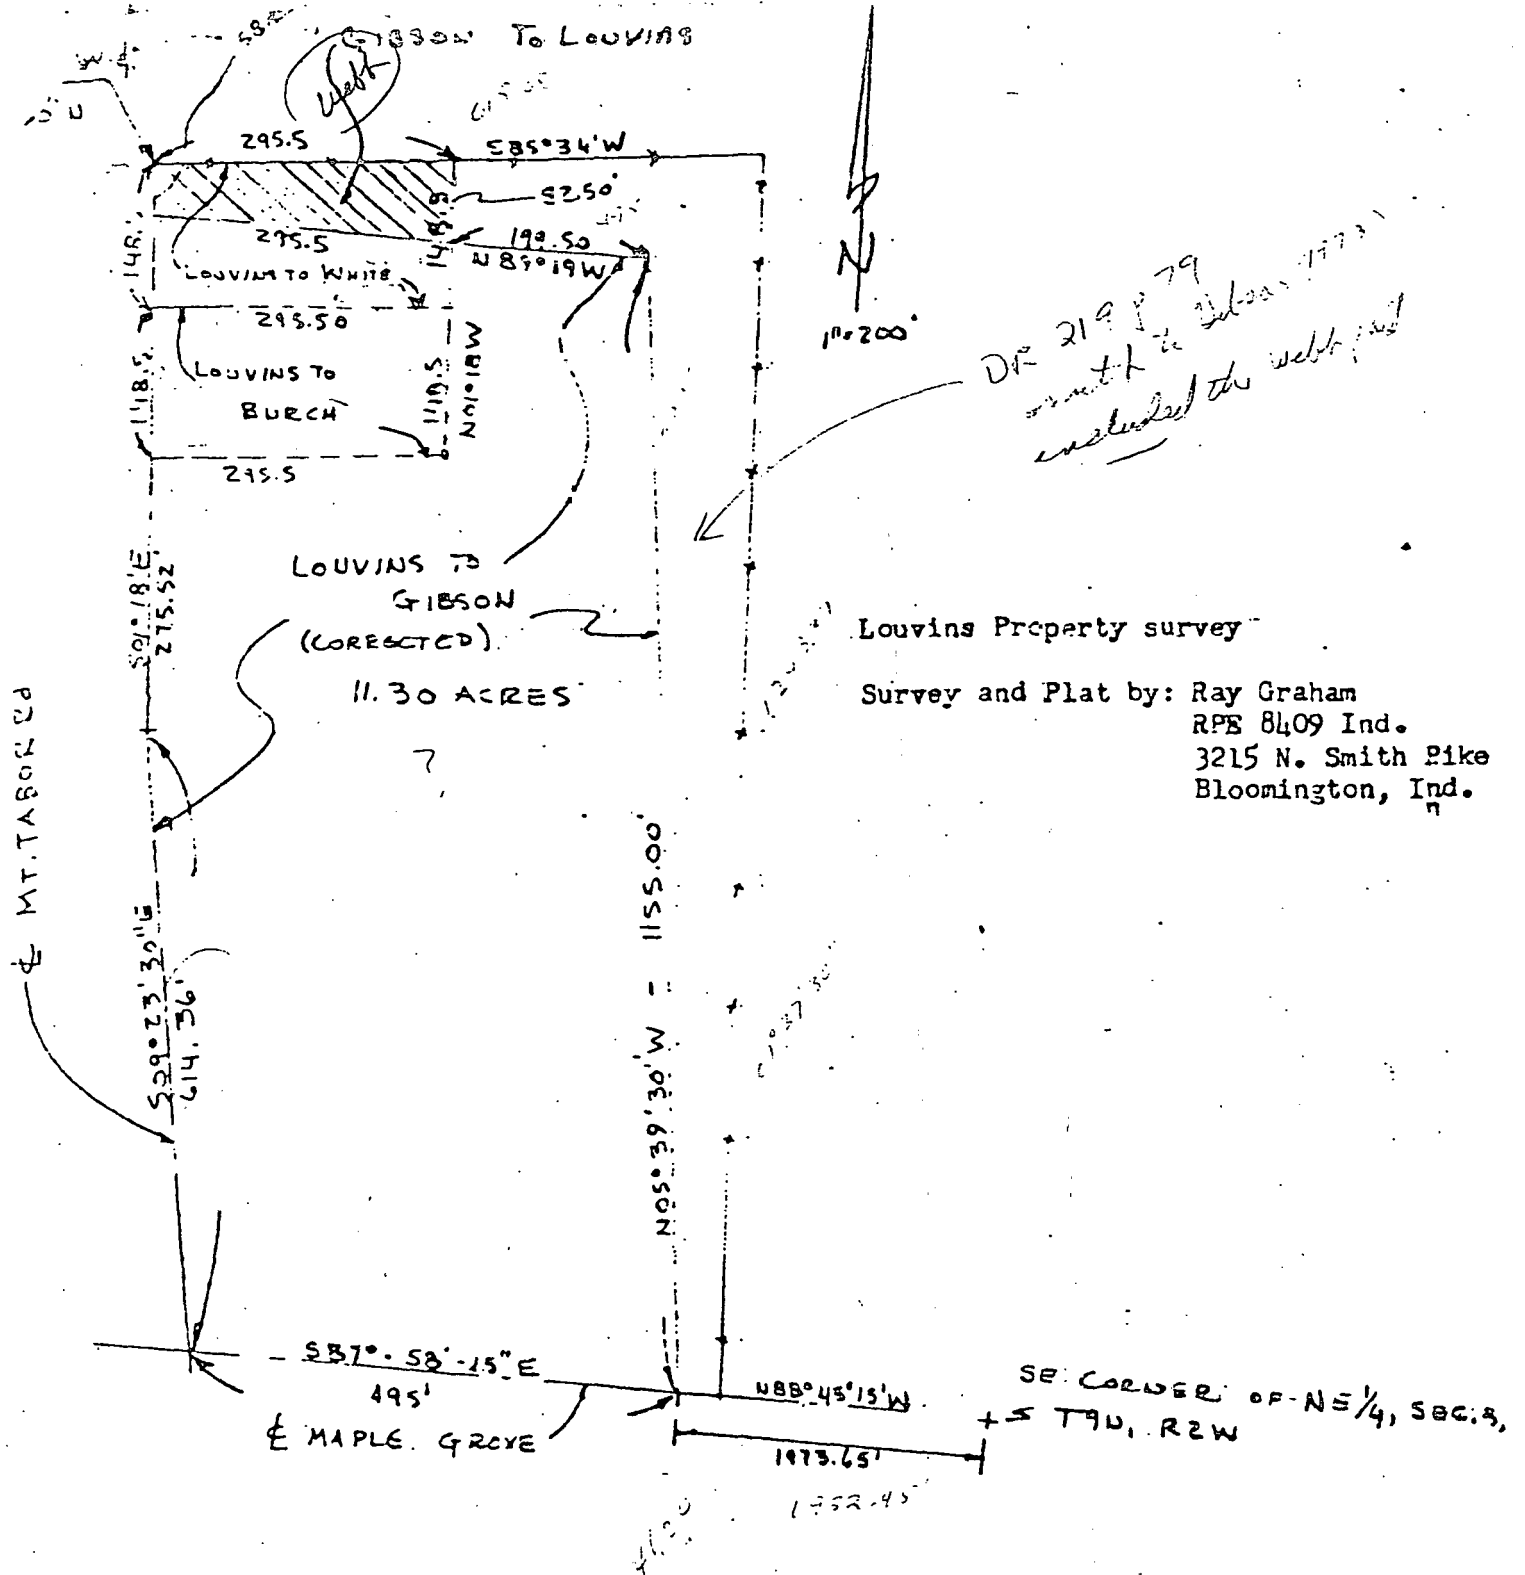 GIBSON TO LOUVINS
Webb
295.5
S85°34'W
S2.50'
295.5
199.50
N89°19'W
148.5
148.
LOUVINS TO WHITE
295.50
LOUVINS TO
BURCH
148.5
N01°18'W
295.5
N
1"=200'
DR 219 P 79
included the webb
LOUVINS TO
GIBSON
(CORECTED)
11.30 ACRES
?
S01°18'E
275.52'
Louvins Property survey
Survey and Plat by: Ray Graham
RPE 8409 Ind.
3215 N. Smith Pike
Bloomington, Ind.
₵ MT. TABOR Rd
S29°23'30"E
614.36'
N05°39'30'W - 1155.00'
S87°-58'-15"E
495'
₵ MAPLE GROVE
N88°45'15'W
1973.65'
1952.45
SE CORNER OF NE 1/4, SEC. 8,
T9N, R2W